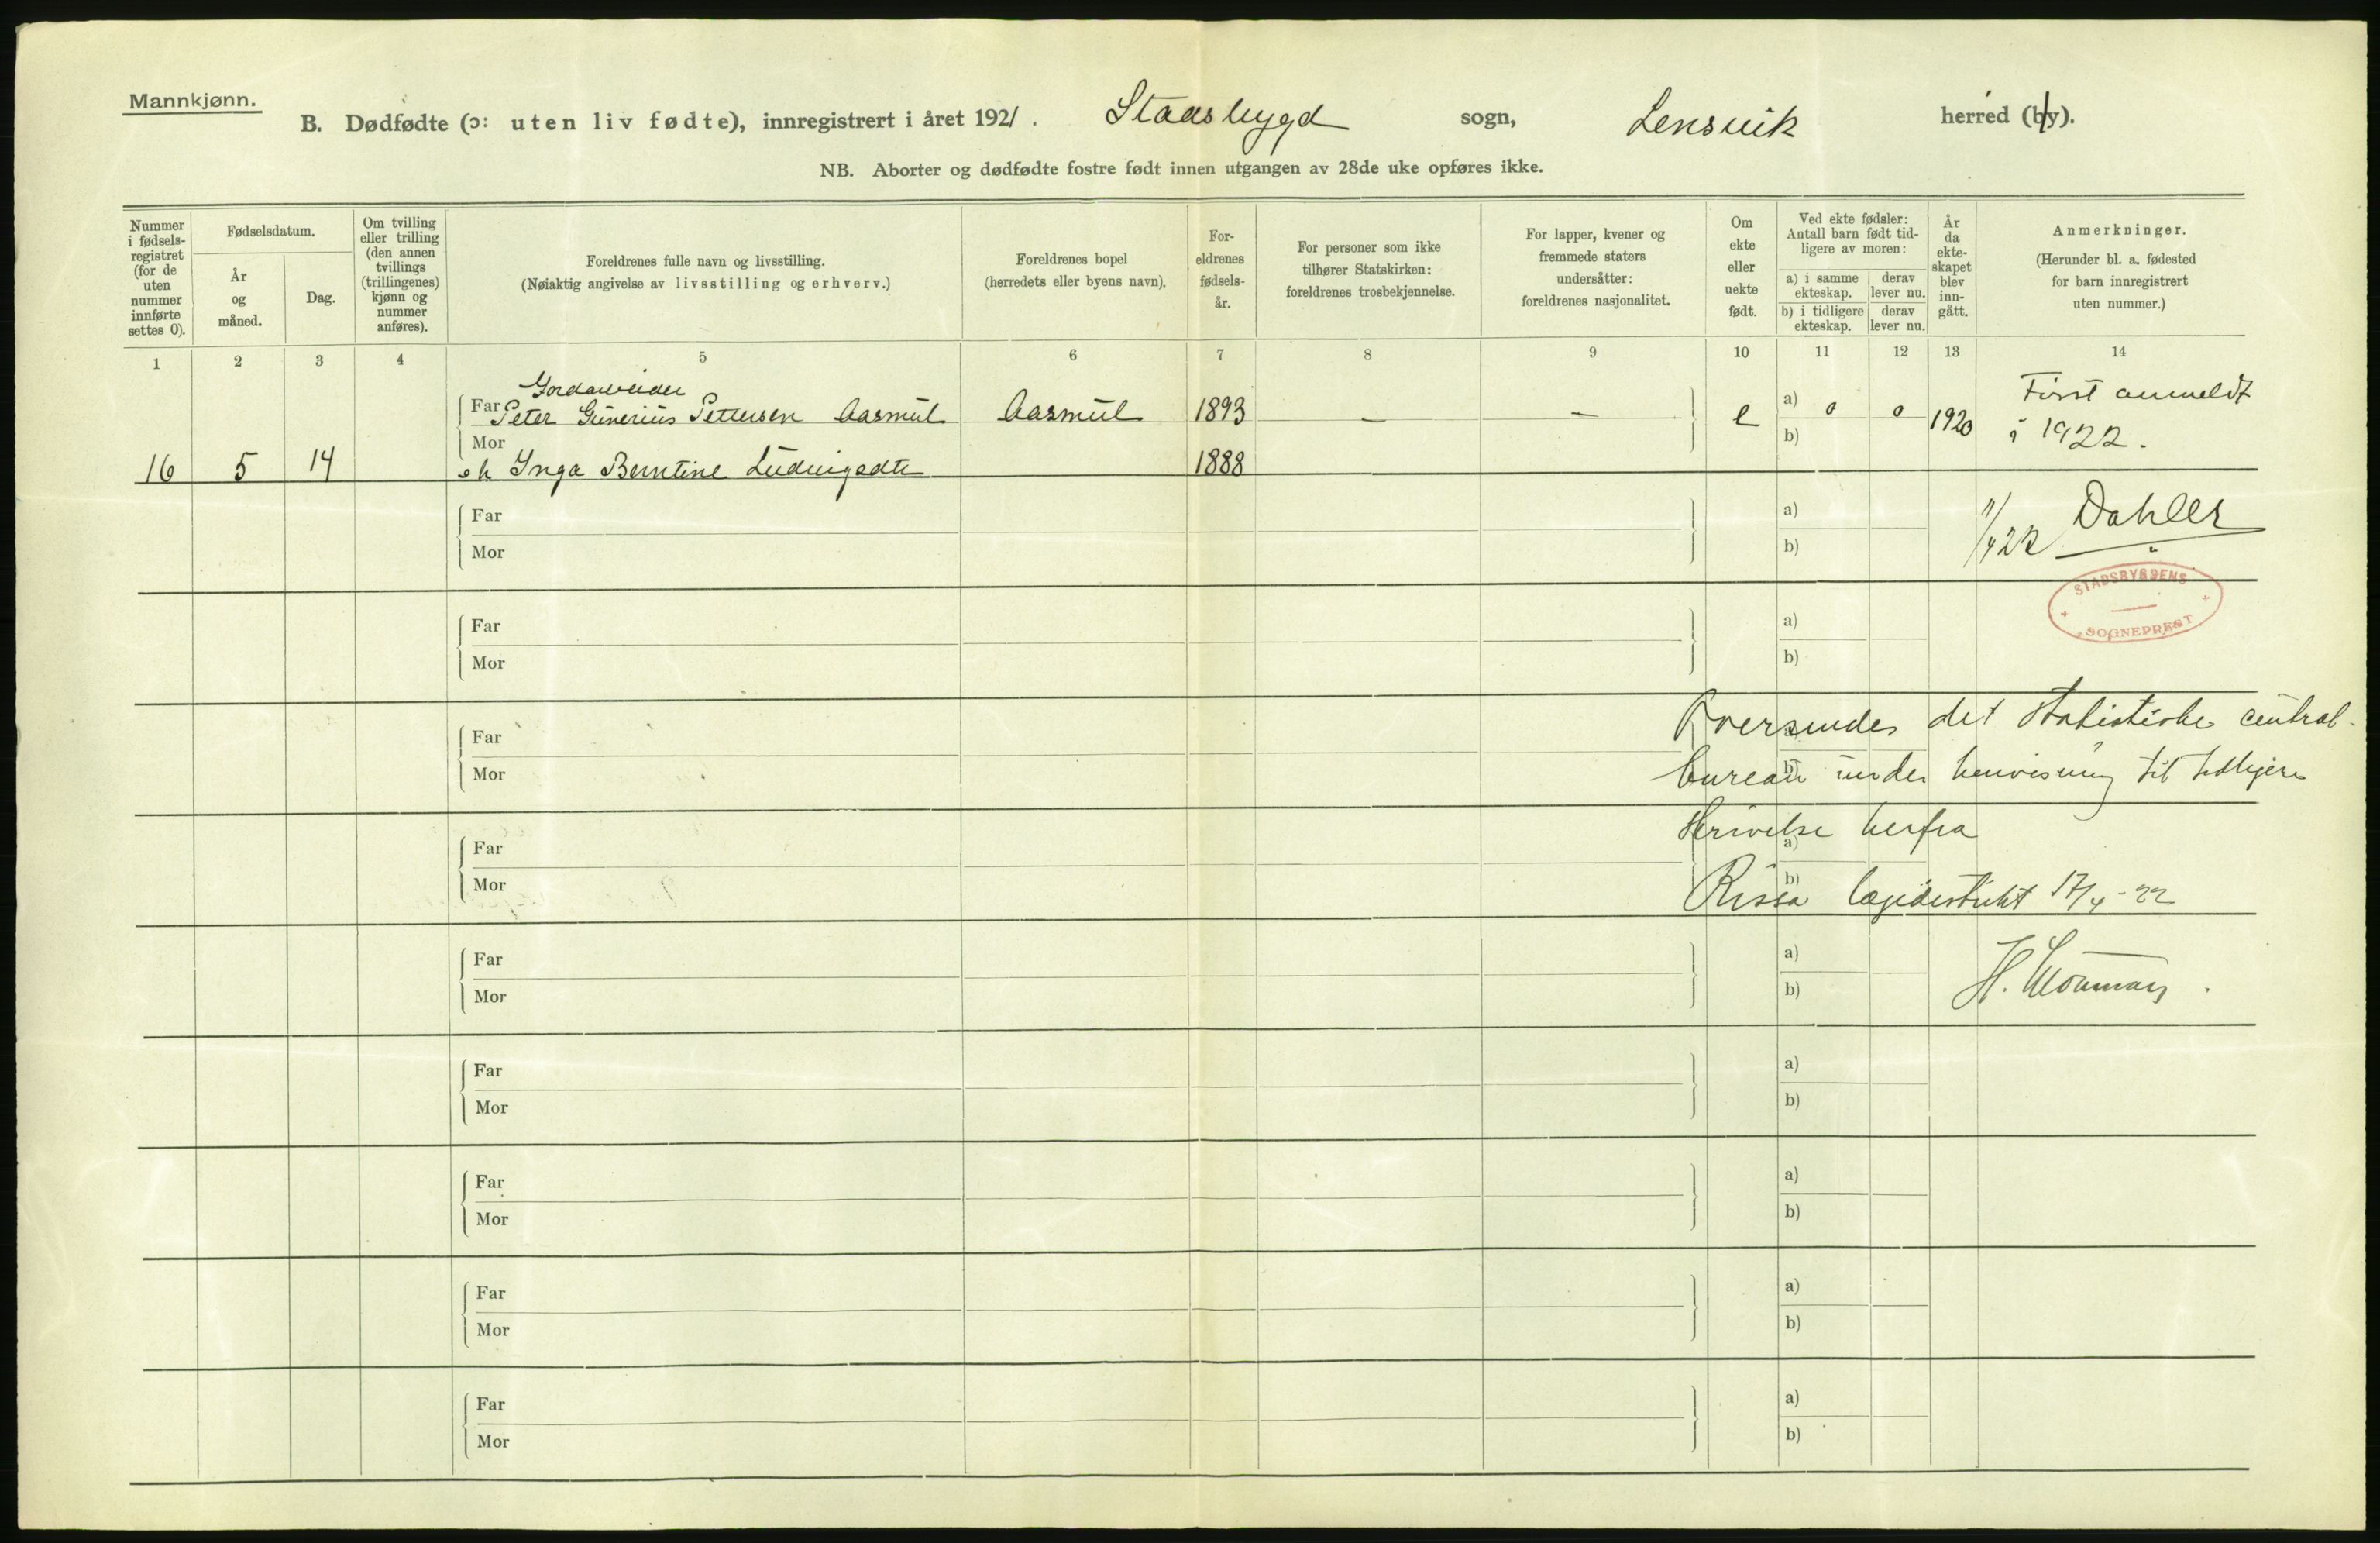 Mannkjønn.
B. Dødfødte (ɔ: uten liv fødte), innregistrert i året 1921. Stadsbygd sogn, Lensvik herred (by).
NB. Aborter og dødfødte fostre født innen utgangen av 28de uke opføres ikke.
Nummer i fødsels-registret (for de uten nummer innførte settes 0).
Fødselsdatum.
År og måned.
Dag.
Om tvilling eller trilling (den annen tvillings (trillingenes) kjønn og nummer anføres).
Foreldrenes fulle navn og livsstilling.
(Nøiaktig angivelse av livsstilling og erhverv.)
Foreldrenes bopel
(herredets eller byens navn).
For-eldrenes fødsels-år.
For personer som ikke tilhører Statskirken: foreldrenes trosbekjennelse.
For lapper, kvener og fremmede staters undersåtter: foreldrenes nasjonalitet.
Om ekte eller uekte født.
Ved ekte fødsler: Antall barn født tid-ligere av moren:
a) i samme ekteskap.
derav lever nu.
b) i tidligere ekteskap.
derav lever nu.
År da ekte-skapet blev inn-gått.
Anmerkninger.
(Herunder bl. a. fødested for barn innregistrert uten nummer.)
1 2 3 4 5 6 7 8 9 10 11 12 13 14
Jordarbeider
Far Peter Gunerius Pettersen Aasmul Aasmul 1893 — — e a) 0 0 1920 Først anmeldt
Mor b) i 1922.
16 5 14 eh Inga Berntine Ludvigsdtr 1888
Far a) 11/4 22 Dahler
Mor b)
STADSBYGDENS
SOGNEPREST
Far a)
Mor b)
Oversendes det statistiske central-
Far
bureau under henvisning til tidligere
Mor b)
skrivelse herfra
Far a)
Rissa lægedistrikt 17/4-22
Mor b)
Far a)
H.
Mor b)
Far a)
Mor b)
Far a)
Mor b)
Far a)
Mor b)
Far a)
Mor b)